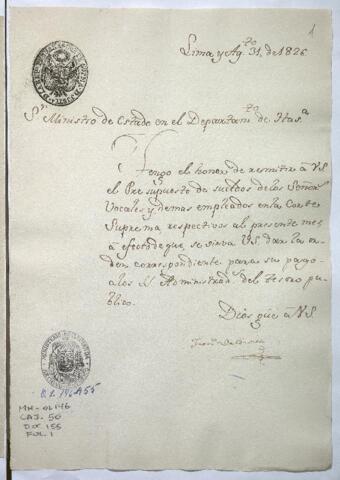 1
Lima y Ag.to 31, de 1826
S.r Ministro de Estado en el Departam.to de Has.a
Tengo el honor de remitir à V.S.
el Presupuesto de sueldos de los Señor.s
Vocales y demas empleados en la Corte
Suprema, respectivos al presente mes,
à efecto de que se sirva V.S. dar la or
den correspondiente para su pago
a los Administrad. del tesoro pu
blico.
Dios gûe à V.S.
MH-OL146
CAJ. 50
Doc 155
FOL. 1